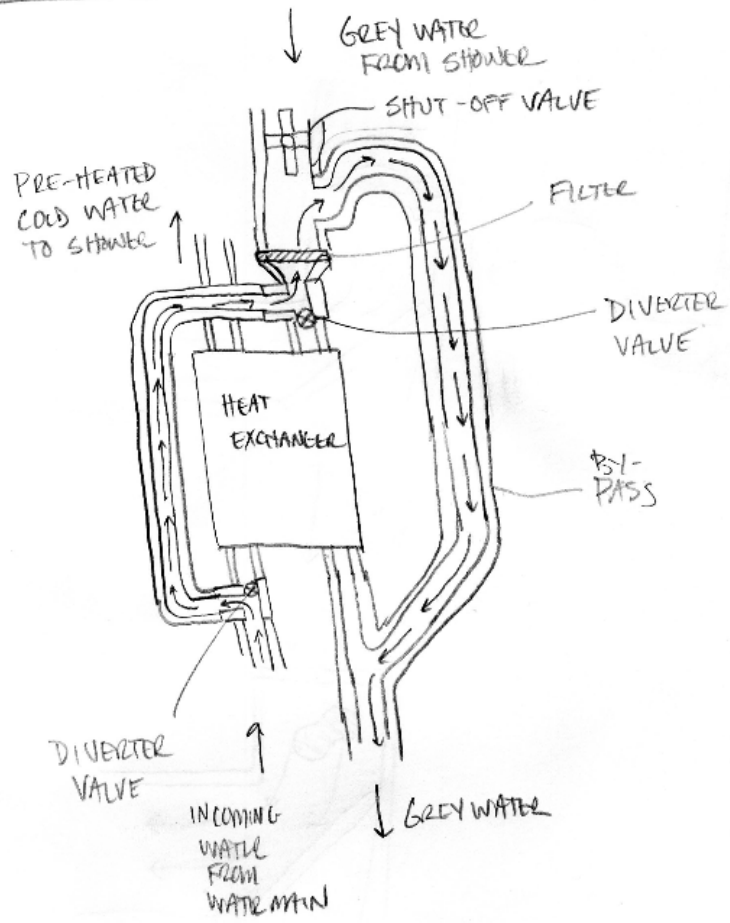 GREY WATER
FROM SHOWER
SHUT-OFF VALVE
PRE-HEATED
COLD WATER
TO SHOWER
FILTER
DIVERTER
VALVE
HEAT
EXCHANGER
BY-
PASS
DIVERTER
VALVE
INCOMING
WATER
FROM
WATER MAIN
GREY WATER